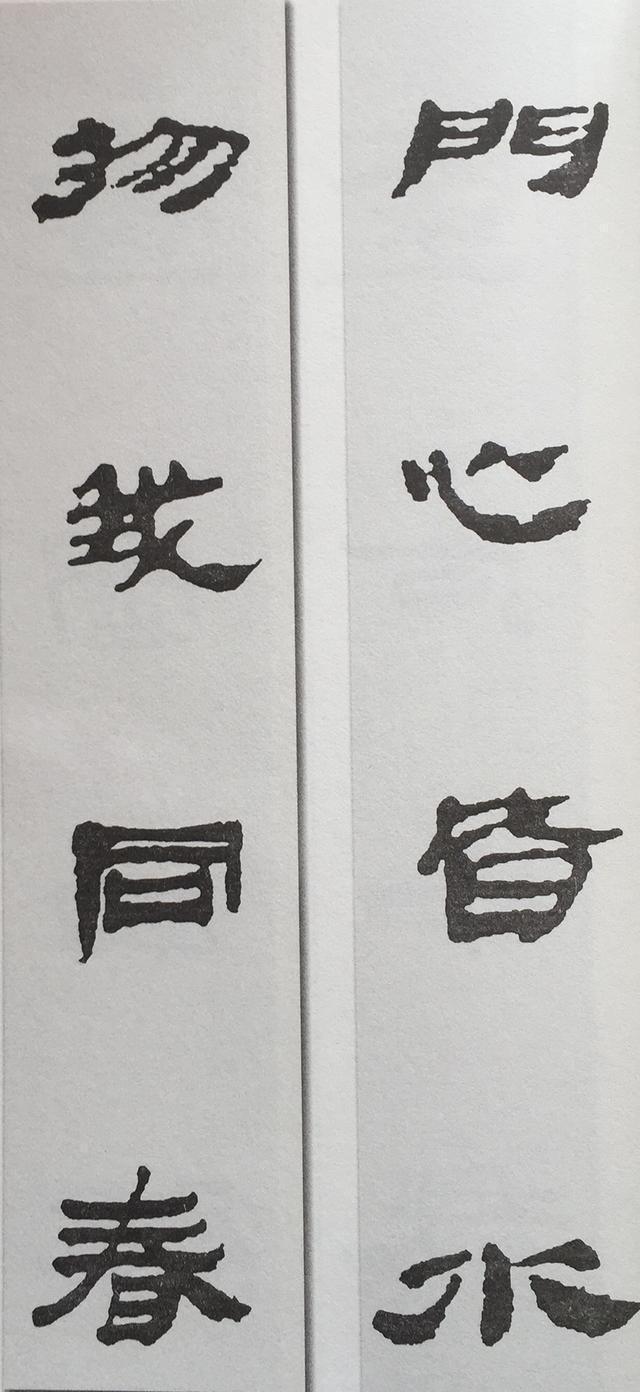 門心皆水
物我同春